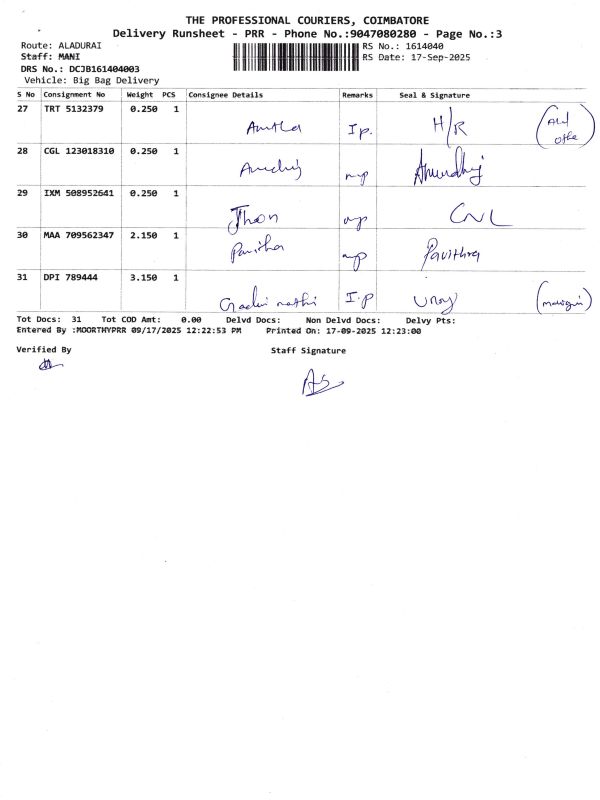 THE PROFESSIONAL COURIERS, COIMBATORE
Delivery Runsheet - PRR - Phone No.:9047080280 - Page No.:3
Route: ALADURAI RS No.: 1614040
Staff: MANI RS Date: 17-Sep-2025
DRS No.: DCJB161404003
Vehicle: Big Bag Delivery
S No Consignment No Weight PCS Consignee Details Remarks Seal & Signature
27 TRT 5132379 0.250 1 I.p. H/R
28 CGL 123018310 0.250 1
29 IXM 508952641 0.250 1 Jhon
30 MAA 709562347 2.150 1 Pavitha Pavithra
31 DPI 789444 3.150 1 I.p
Tot Docs: 31 Tot COD Amt: 0.00 Delvd Docs: Non Delvd Docs: Delvy Pts:
Entered By :MOORTHYPRR 09/17/2025 12:22:53 PM Printed On: 17-09-2025 12:23:00
Verified By Staff Signature